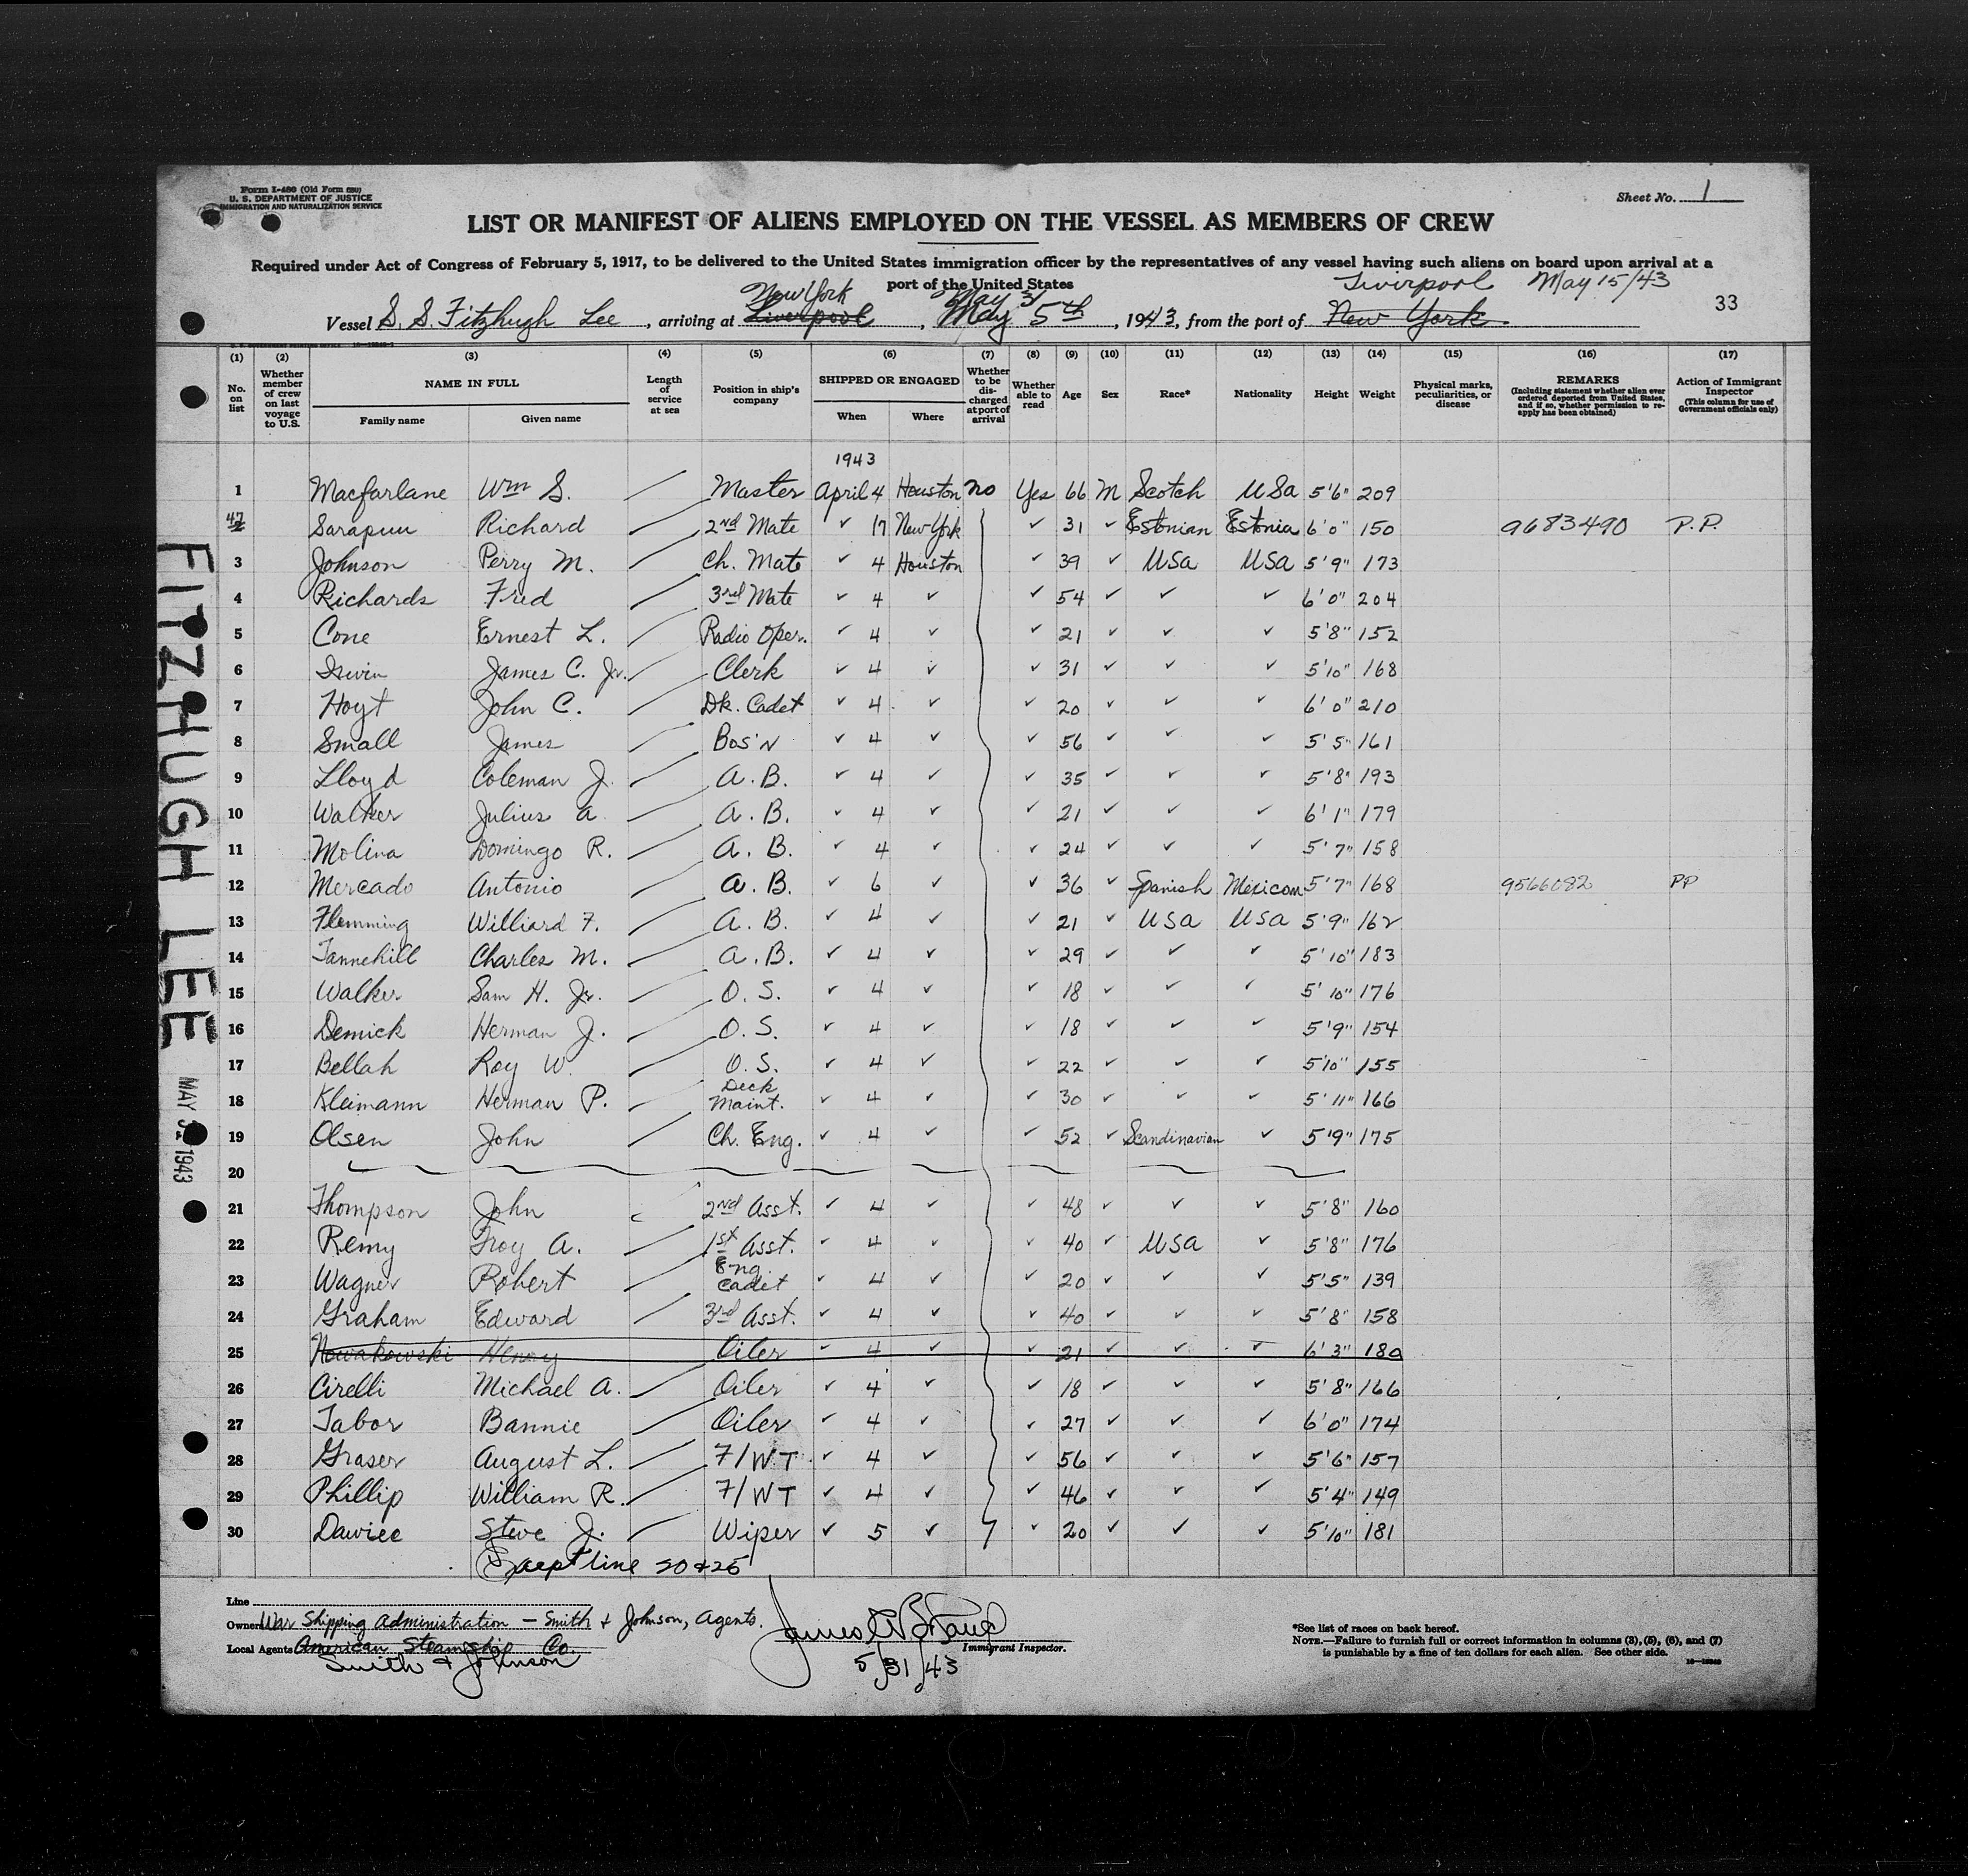 Form I-480 (Old Form 680)
U. S. DEPARTMENT OF JUSTICE
IMMIGRATION AND NATURALIZATION SERVICE
Sheet No. 1
LIST OR MANIFEST OF ALIENS EMPLOYED ON THE VESSEL AS MEMBERS OF CREW
Required under Act of Congress of February 5, 1917, to be delivered to the United States immigration officer by the representatives of any vessel having such aliens on board upon arrival at a
port of the United States
New York May 31 Liverpool May 15/43
Vessel S. S. Fitzhugh Lee, arriving at Liverpool, May 5th, 1943, from the port of New York.
33
(1) (2) (3) (4) (5) (6) (7) (8) (9) (10) (11) (12) (13) (14) (15) (16) (17)
No. on list
Whether member of crew on last voyage to U.S.
NAME IN FULL
Family name Given name
Length of service at sea
Position in ship's company
SHIPPED OR ENGAGED
When Where
Whether to be discharged at port of arrival
Whether able to read
Age
Sex
Race*
Nationality
Height
Weight
Physical marks, peculiarities, or disease
REMARKS
(Including statement whether alien ever ordered deported from United States, and if so, whether permission to reapply has been obtained)
Action of Immigrant Inspector
(This column for use of Government officials only)
1943
1 Macfarlane Wm S. Master April 4 Houston no Yes 66 M Scotch USa 5'6" 209
42 Sarapuu Richard 2nd Mate ✓ 17 New York ✓ 31 ✓ Estonian Estonia 6'0" 150 9683490 P.P.
3 Johnson Perry M. Ch. Mate ✓ 4 Houston ✓ 39 ✓ USa USa 5'9" 173
4 Richards Fred 3rd Mate ✓ 4 ✓ ✓ 54 ✓ ✓ ✓ 6'0" 204
5 Cone Ernest L. Radio Oper. ✓ 4 ✓ ✓ 21 ✓ ✓ ✓ 5'8" 152
6 Irwin James C. Jr. Clerk ✓ 4 ✓ ✓ 31 ✓ ✓ ✓ 5'10" 168
7 Hoyt John C. Dk. Cadet ✓ 4 ✓ ✓ 20 ✓ ✓ ✓ 6'0" 210
8 Small James Bos'n ✓ 4 ✓ ✓ 56 ✓ ✓ ✓ 5'5" 161
9 Lloyd Coleman J. a. B. ✓ 4 ✓ ✓ 35 ✓ ✓ ✓ 5'8" 193
10 Walker Julius a. a. B. ✓ 4 ✓ ✓ 21 ✓ ✓ ✓ 6'1" 179
11 Molina Domingo R. a. B. ✓ 4 ✓ ✓ 24 ✓ ✓ ✓ 5'7" 158
12 Mercado Antonio a. B. ✓ 6 ✓ ✓ 36 ✓ Spanish Mexican 5'7" 168 9566082 PP
13 Flemming Williard F. a. B. ✓ 4 ✓ ✓ 21 ✓ USa USa 5'9" 162
14 Tannehill Charles M. a. B. ✓ 4 ✓ ✓ 29 ✓ ✓ ✓ 5'10" 183
15 Walker Sam H. Jr. O. S. ✓ 4 ✓ ✓ 18 ✓ ✓ ✓ 5'10" 176
16 Demick Herman J. O. S. ✓ 4 ✓ ✓ 18 ✓ ✓ ✓ 5'9" 154
17 Bellah Roy W. O. S. ✓ 4 ✓ ✓ 22 ✓ ✓ ✓ 5'10" 155
18 Kleimann Herman P. Deck Maint. ✓ 4 ✓ ✓ 30 ✓ ✓ ✓ 5'11" 166
19 Olsen John Ch. Eng. ✓ 4 ✓ ✓ 52 ✓ Scandinavian ✓ 5'9" 175
20
21 Thompson John 2nd Asst. ✓ 4 ✓ ✓ 48 ✓ ✓ ✓ 5'8" 160
22 Remy Troy A. 1st Asst. ✓ 4 ✓ ✓ 40 ✓ USa ✓ 5'8" 176
23 Wagner Robert Eng. Cadet ✓ 4 ✓ ✓ 20 ✓ ✓ ✓ 5'5" 139
24 Graham Edward 3rd Asst. ✓ 4 ✓ ✓ 40 ✓ ✓ ✓ 5'8" 158
25 Nowakowski Henry Oiler ✓ 4 ✓ ✓ 21 ✓ ✓ ✓ 6'3" 180
26 Cirelli Michael A. Oiler ✓ 4 ✓ ✓ 18 ✓ ✓ ✓ 5'8" 166
27 Tabor Bannie Oiler ✓ 4 ✓ ✓ 27 ✓ ✓ ✓ 6'0" 174
28 Graser August L. F/WT ✓ 4 ✓ ✓ 56 ✓ ✓ ✓ 5'6" 157
29 Phillip William R. F/WT ✓ 4 ✓ ✓ 46 ✓ ✓ ✓ 5'4" 149
30 Dawiec Steve J. Wiper ✓ 5 ✓ ✓ 20 ✓ ✓ ✓ 5'10" 181
Except line 20 & 25
Line
Owners War Shipping Administration - Smith & Johnson, Agents.
Local Agents American Steamship Co.
Smith & Johnson
Immigrant Inspector.
5/31/43
*See list of races on back hereof.
NOTE.—Failure to furnish full or correct information in columns (3), (5), (6), and (7)
is punishable by a fine of ten dollars for each alien. See other side.
FITZHUGH LEE
MAY 31 1943